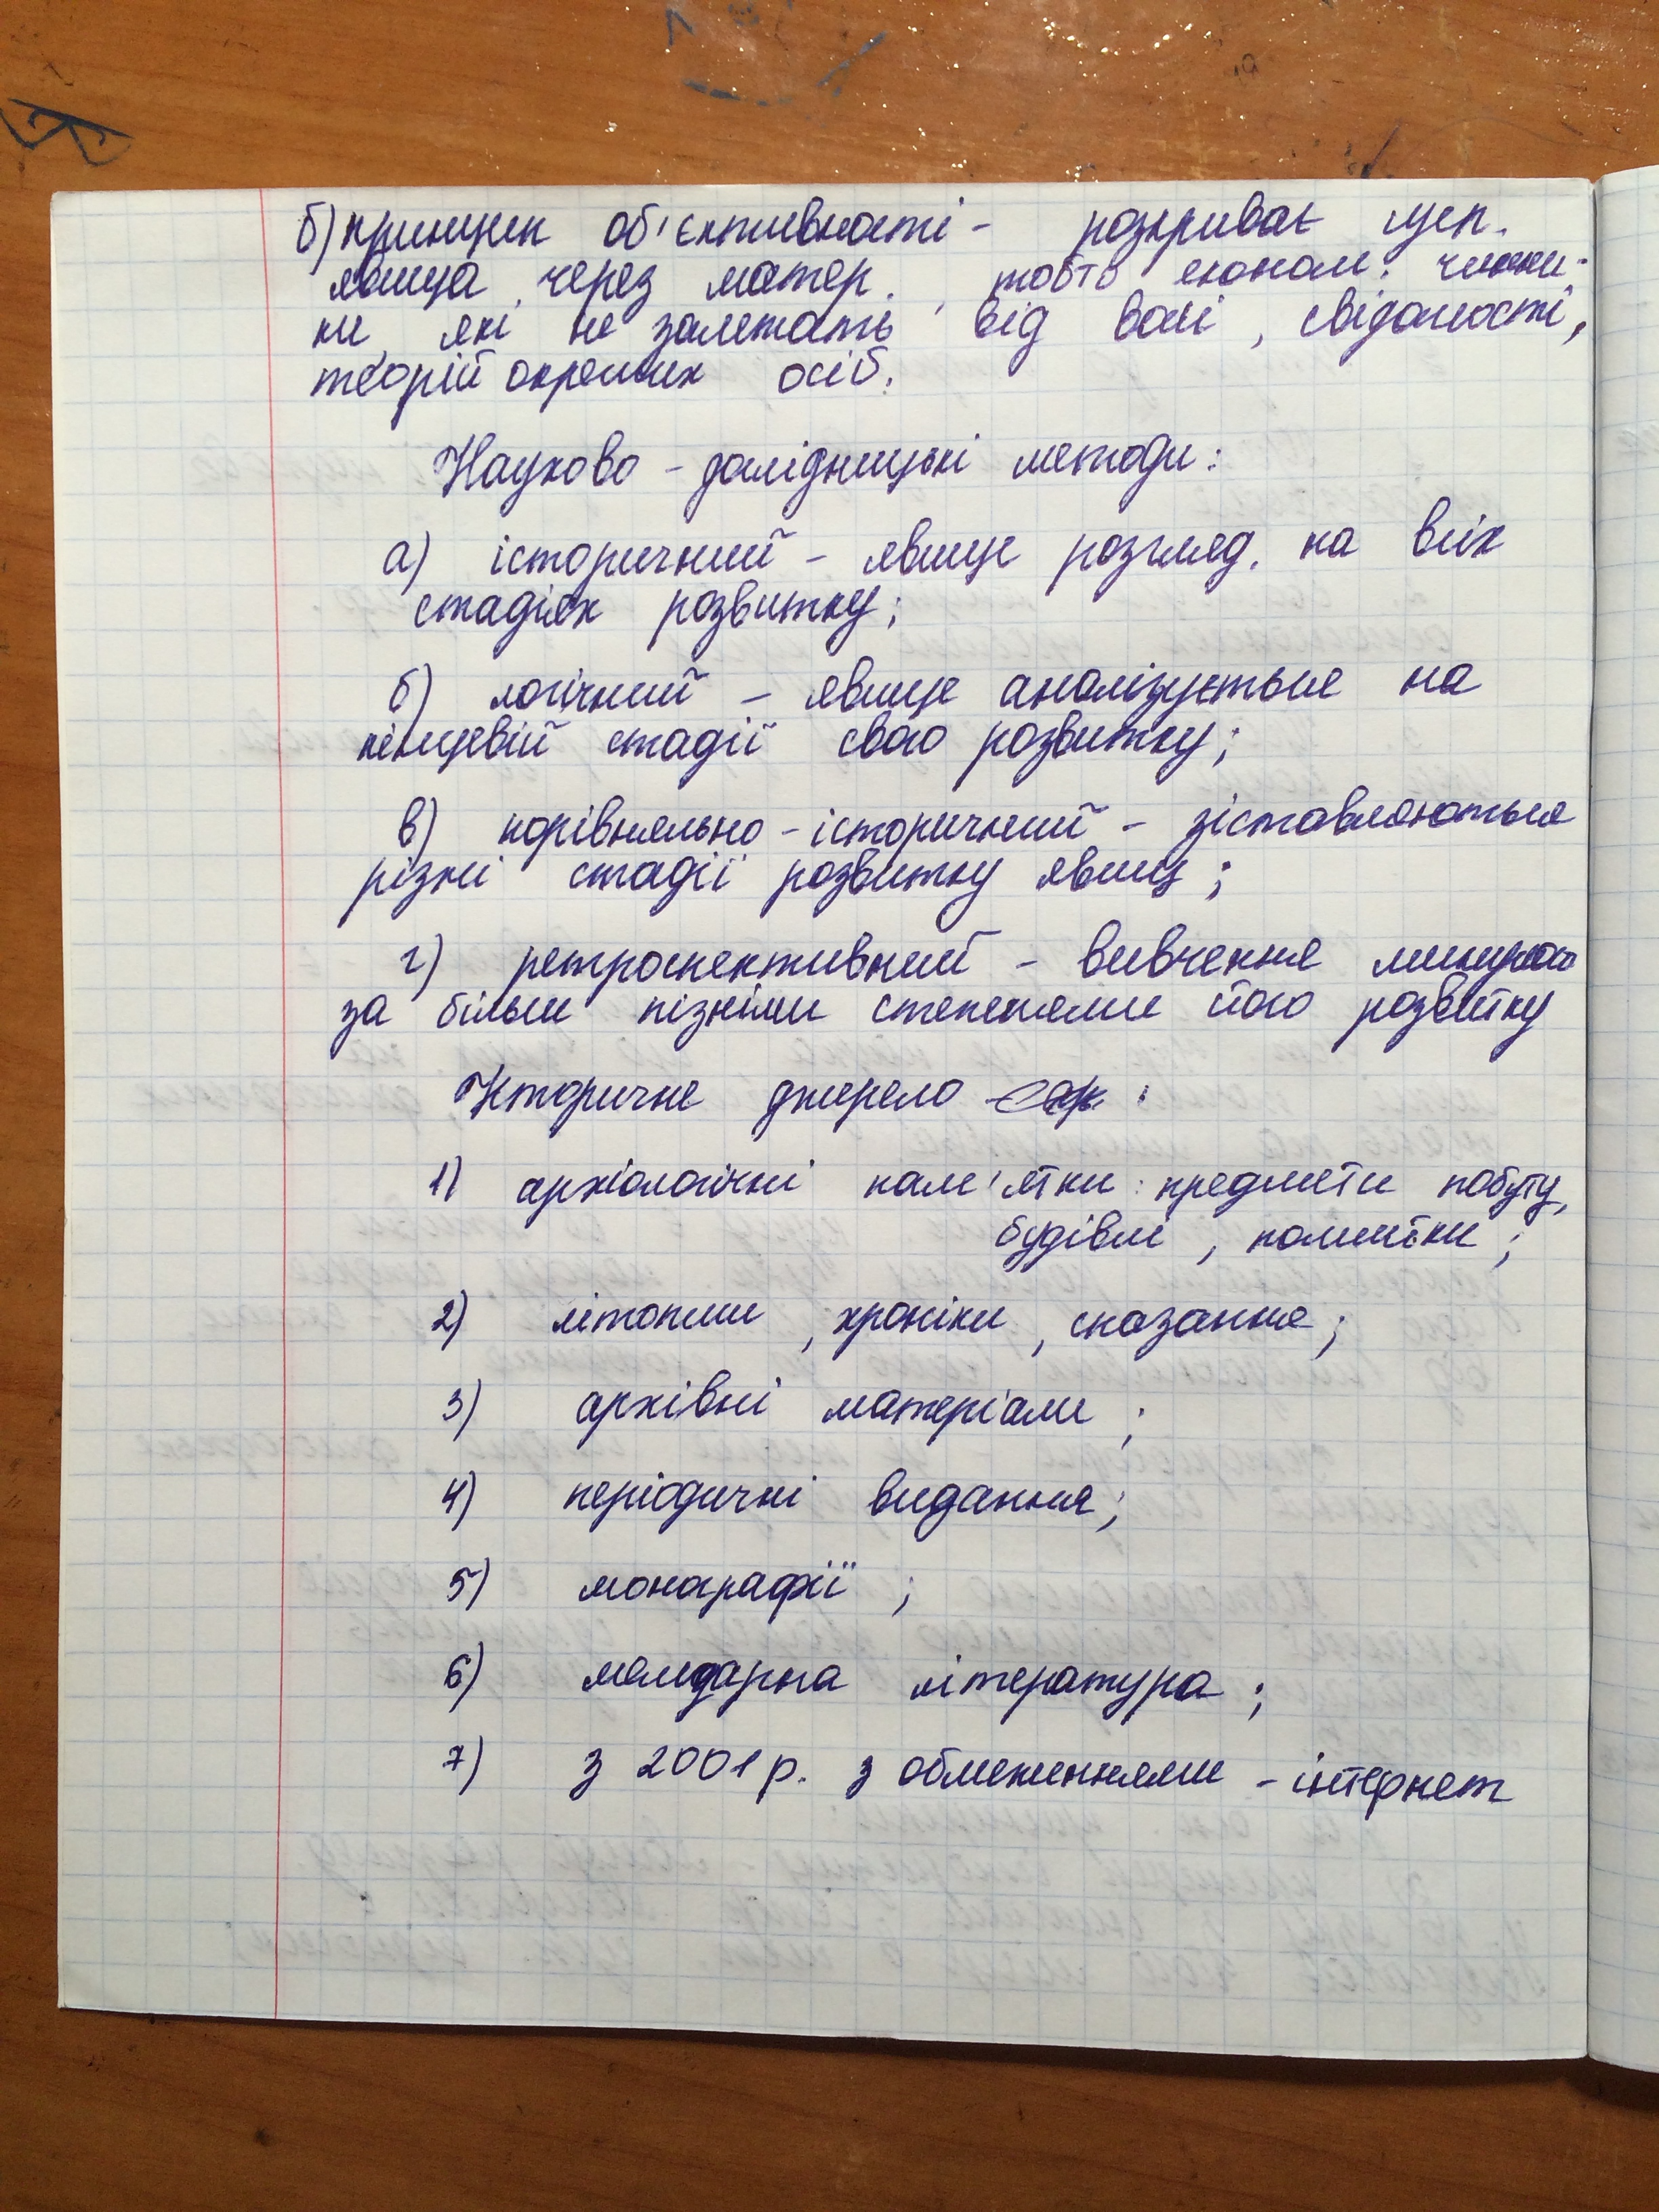 б) принцип об'єктивності - розкриває усп.
явища через матер., тобто економ. чинни-
ки, які не залежать від волі, свідомості,
теорій окремих осіб.
Науково - дослідницькі методи:
а) історичний - явище розгляд. на всіх
стадіях розвитку;
б) логічний - явище аналізується на
кінцевій стадії свого розвитку;
в) порівняльно - історичний - зіставляються
різні стадії розвитку явищ;
г) ретроспективний - вивчення минулого
за більш пізніми степенями його розвитку
Історичне джерело :
1) архіологічні пам'ятки: предмети побуту,
будівлі, помитки;
2) літописи, хроніки, сказання;
3) архівні матеріали;
4) періодичні видання;
5) монографії;
6) мемуарна література;
7) з 2001 р. з обмеженнями - інтернет